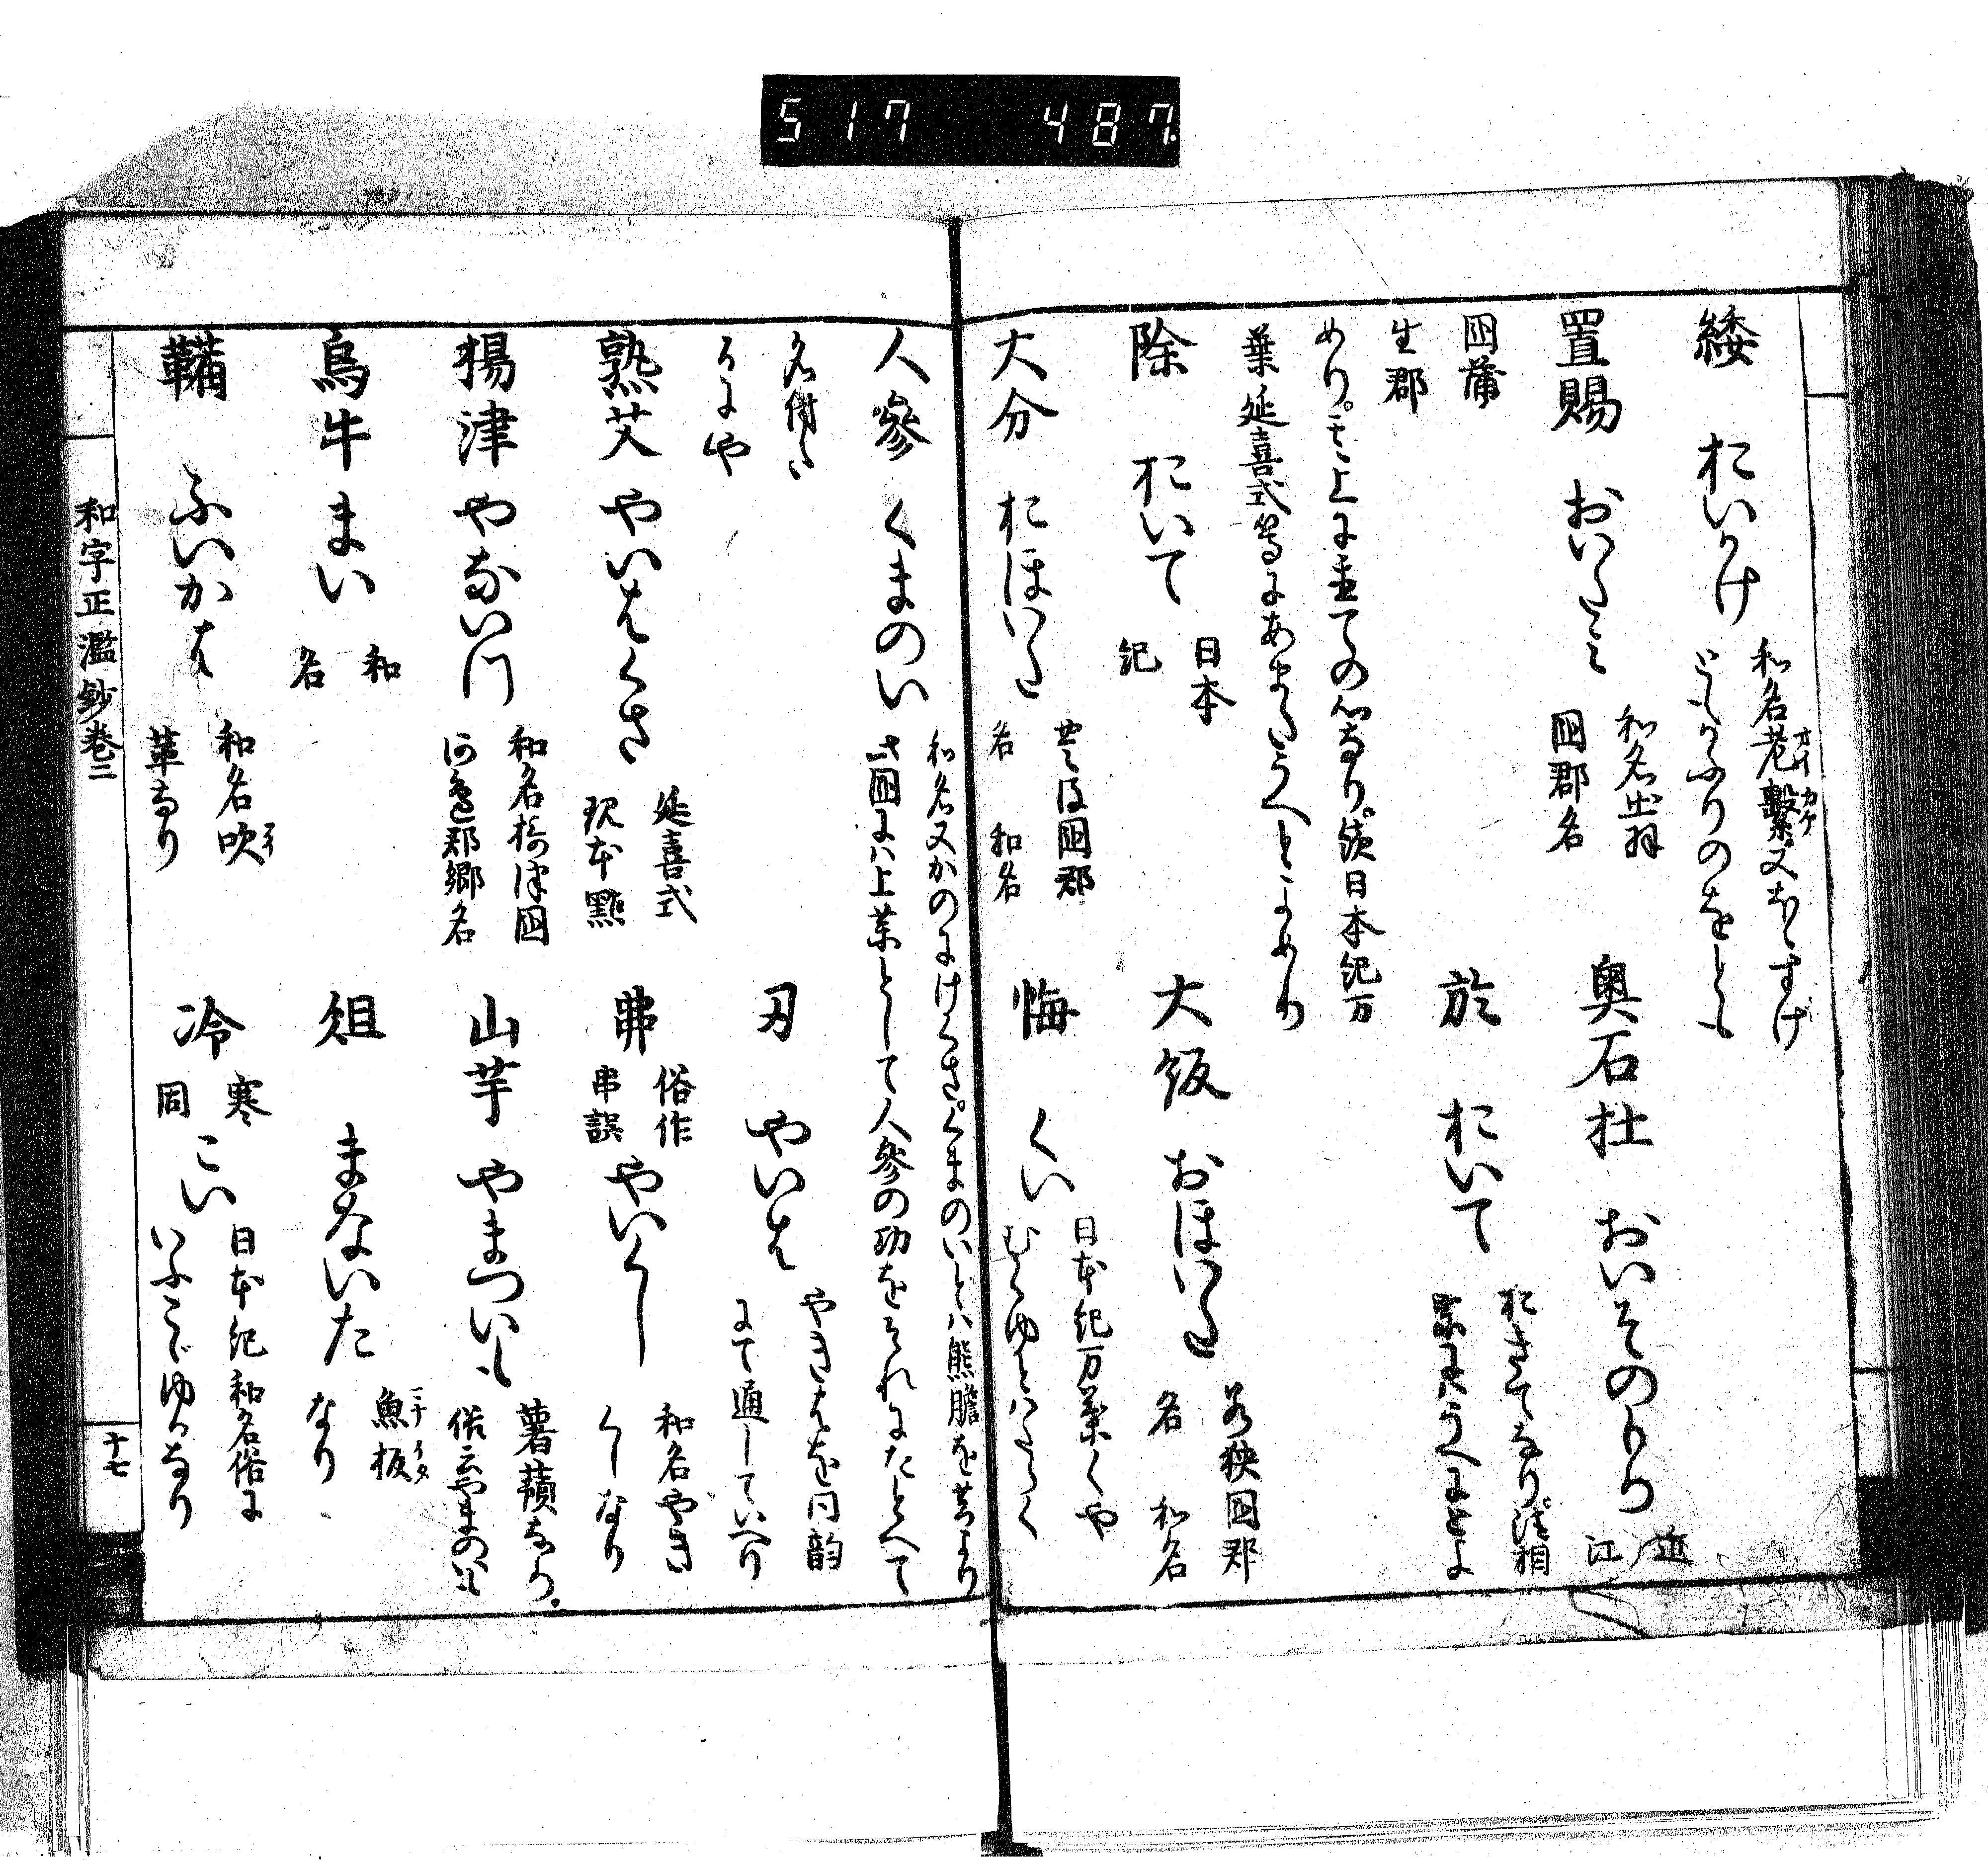 517 487
緌 おいかけ 和名老繋又ほゝすけ
ともかふりのをとも
置賜 おいたみ 和名出羽
国郡名
奥石社 おいそのもり 近江
国蒲
生郡
於 おいて おきてなり
めり。こゝ上に置ての心なり。続日本紀万
葉延喜式等にあまたうへとよめり
除 おいて 日本
紀
大飯 おほいた 若狭国郡
名 和名
大分 おほいた 豊後国郡
名 和名
悔 くい 日本紀万葉くや
むくゆとはたらく
人参 くまのい 和名又かのにけくさ。くまのいとハ熊膽を其まゝ
此国にハ上薬として人参の功をそれにたとへて
名付た
るにや
刃 やいは やきはを同韵
にて通していへり
熟艾 やいはくさ 延喜式
玖本點
弗 俗作
串誤 やいくし 和名やき
くしなり
揚津 やないつ 和名摂津国
河邊郡郷名
山芋 やまついも 薯蕷なり。
俗云やまのいも
烏牛 まい 和
名
俎 まないた 魚板
なり
鞴 ふいかは 和名吹
革なり
冷 寒
同 こい 日本紀和名俗に
いふこゞゆるなり
和字正濫鈔巻二
十七